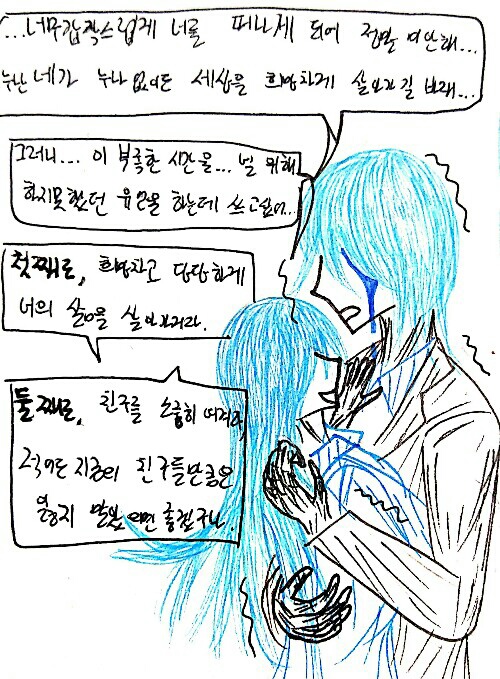 ...너무 갑작스럽게 너를 떠나게 되어 정말 미안해...
누난 네가 누나 없이도 세상을 희망차게 살아가길 바래...
그러니... 이 부족한 시간을... 널 위해
하지못했던 유언을 하는데 쓰고싶어...
첫째로, 희망차고 당당하게
너의 삶을 살아가거라.
둘째로, 친구를 소중히 여겨라,
적어도 지금의 친구들만큼은
잃지 말았으면 좋겠구나.